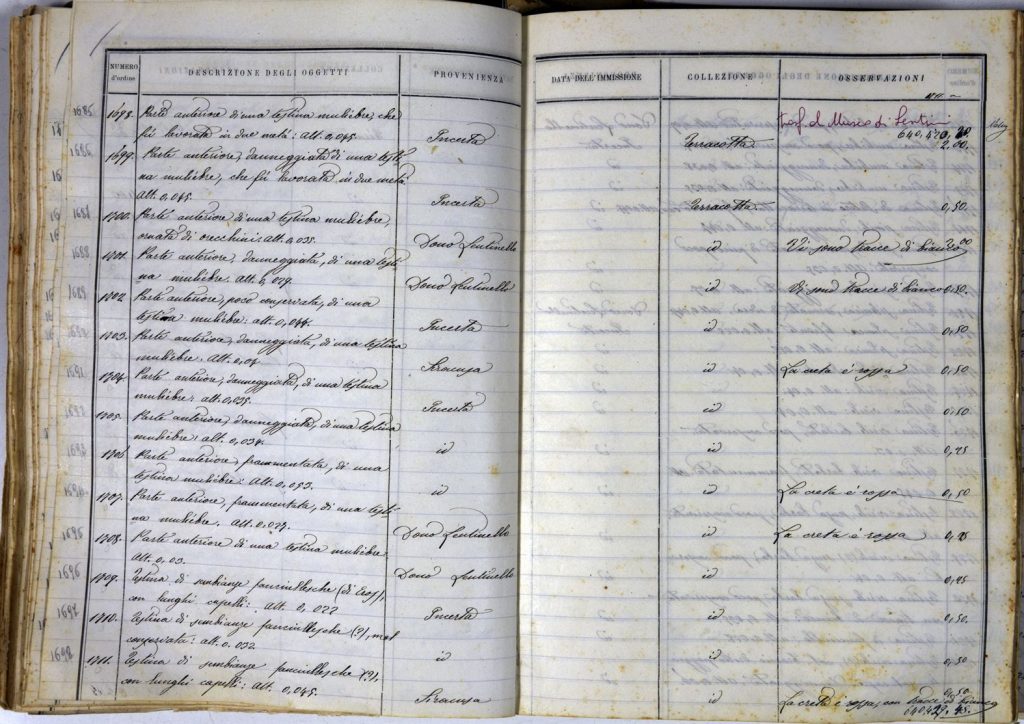 NUMERO d'ordine
DESCRIZIONE DEGLI OGGETTI
PROVENIENZA
DATA DELL'IMMISSIONE
COLLEZIONE
OSSERVAZIONI
1698. Parte anteriore di una testina muliebre, che
fù lavorata in due metà: alt. 0,045.
Incerta
Terracotta
trasf. al Museo di Lentini
2.00.
1699. Parte anteriore, danneggiata di una testi-
na muliebre, che fù lavorata in due metà.
Alt. 0,045.
Incerta
Terracotta
0,50.
1700. Parte anteriore di una testina muliebre,
ornata di orecchini: alt. 0,035.
Dono Lentinello
id
Vi sono tracce di bianco 2,00
1701. Parte anteriore, danneggiata, di una testi-
na muliebre. Alt. 0,029.
Dono Lentinello
id
Vi sono tracce di bianco 0,50.
1702. Parte anteriore, poco conservata, di una
testina muliebre: alt. 0,044.
Incerta
id
0,50
1703. Parte anteriore, danneggiata, di una testina
muliebre. Alt. 0,04
Siracusa
id
La creta è rossa
0,50
1704. Parte anteriore, danneggiata, di una testina
muliebre: alt. 0,035.
Incerta
id
0,50.
1705. Parte anteriore, danneggiata, di una testina
muliebre: alt. 0,034.
id
id
0,25
1706. Parte anteriore, frammentata, di una
testina muliebre. Alt. 0,053.
id
id
La creta è rossa
0,50
1707. Parte anteriore, frammentata, di una testi-
na muliebre. Alt. 0,029.
Dono Lentinello
id
La creta è rossa
0,25
1708. Parte anteriore di una testina muliebre
Alt. 0,03.
Dono Lentinello
id
0,25
1709. Testina di sembianze fanciullesche
con lunghi capelli: Alt. 0,022
Incerta
id
0,50.
1710. Testina di sembianze fanciullesche (?), mal
conservata: alt. 0.032.
id
id
0,50
1711. Testina di sembianze fanciullesche (?),
con lunghi capelli: Alt. 0,045.
Siracusa
id
0,50
La creta è rossa, con tracce di bianco